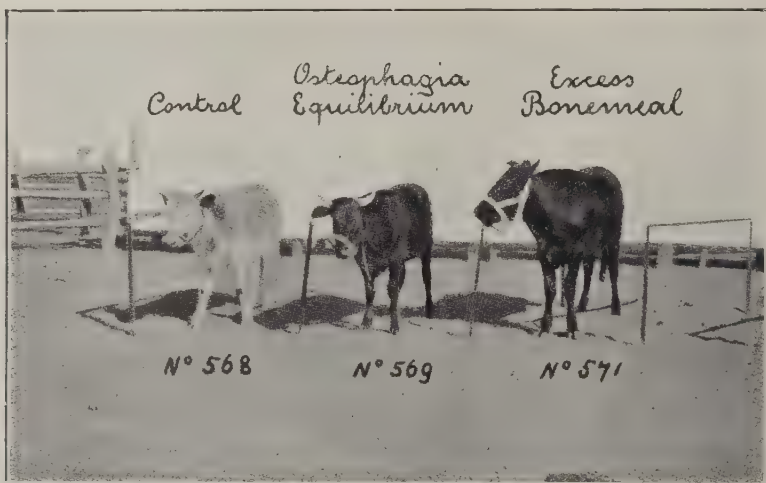 Control
Osteophagia
Equilibrium
Excess
Bonemeal
Nº 568
Nº 569
Nº 571